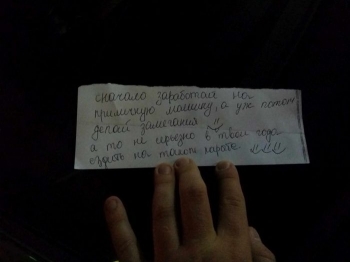 сначало заработай на
приличную машину, а уже потом
делай замечания !!
а то не серьезно в твои года
ездить на таком корыте